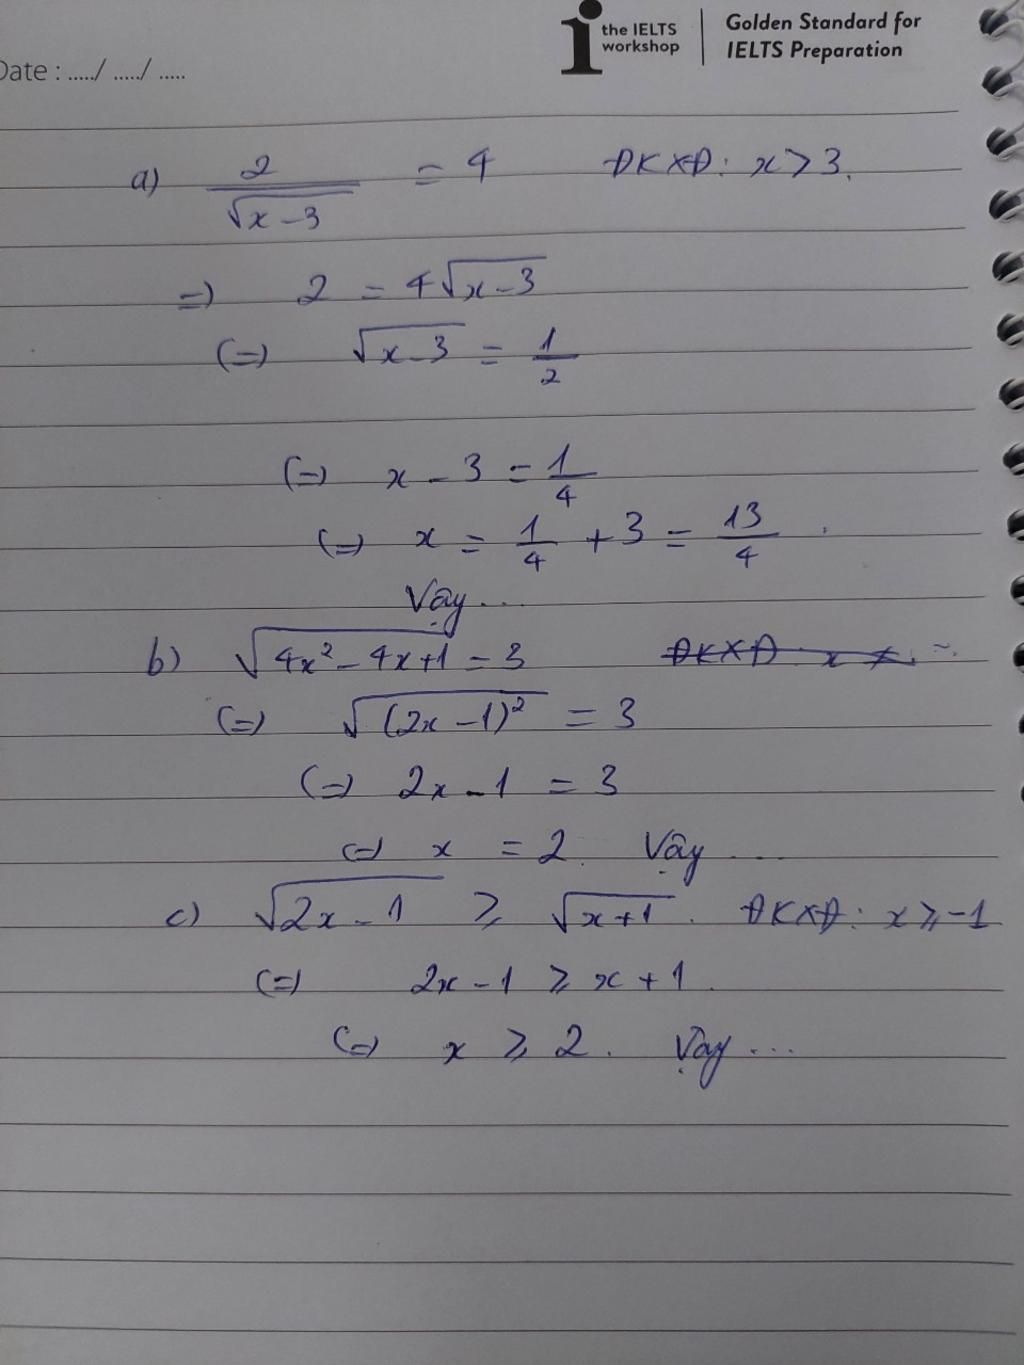 the IELTS workshop
Golden Standard for IELTS Preparation
Date : ...../ ...../ .....
a) 2/√(x-3) = 4 ĐKXĐ: x > 3.
=) 2 = 4√(x-3)
(=) √(x-3) = 1/2
(=) x - 3 = 1/4
(=) x = 1/4 + 3 = 13/4.
Vậy...
b) √(4x² - 4x+1) = 3 ĐKXĐ: x
(=) √((2x-1)²) = 3
(=) 2x - 1 = 3
(=) x = 2. Vậy ....
c) √(2x-1) ⩾ √(x+1). ĐKXĐ: x ⩾ -1
(=) 2x - 1 ⩾ x + 1.
(=) x ⩾ 2. Vậy ...